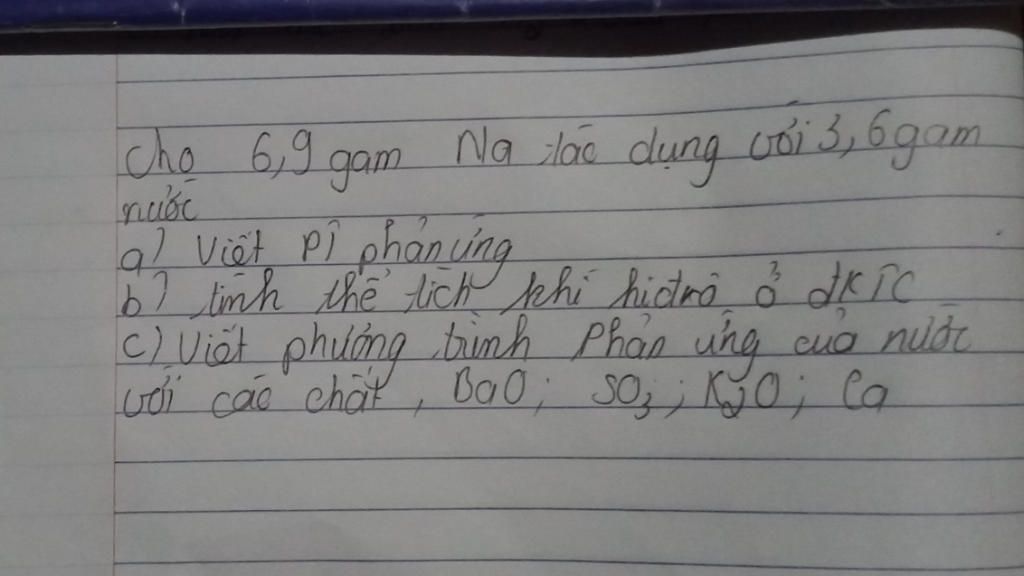 Cho 6,9 gam Na tác dụng với 3,6 gam
nước
a) Viết PT phản ứng
b) tính thể tích khí hiđrô ở đKTC
c) Viết phương trình phản ứng của nước
với các chất, BaO; SO₃; K₂O; Ca